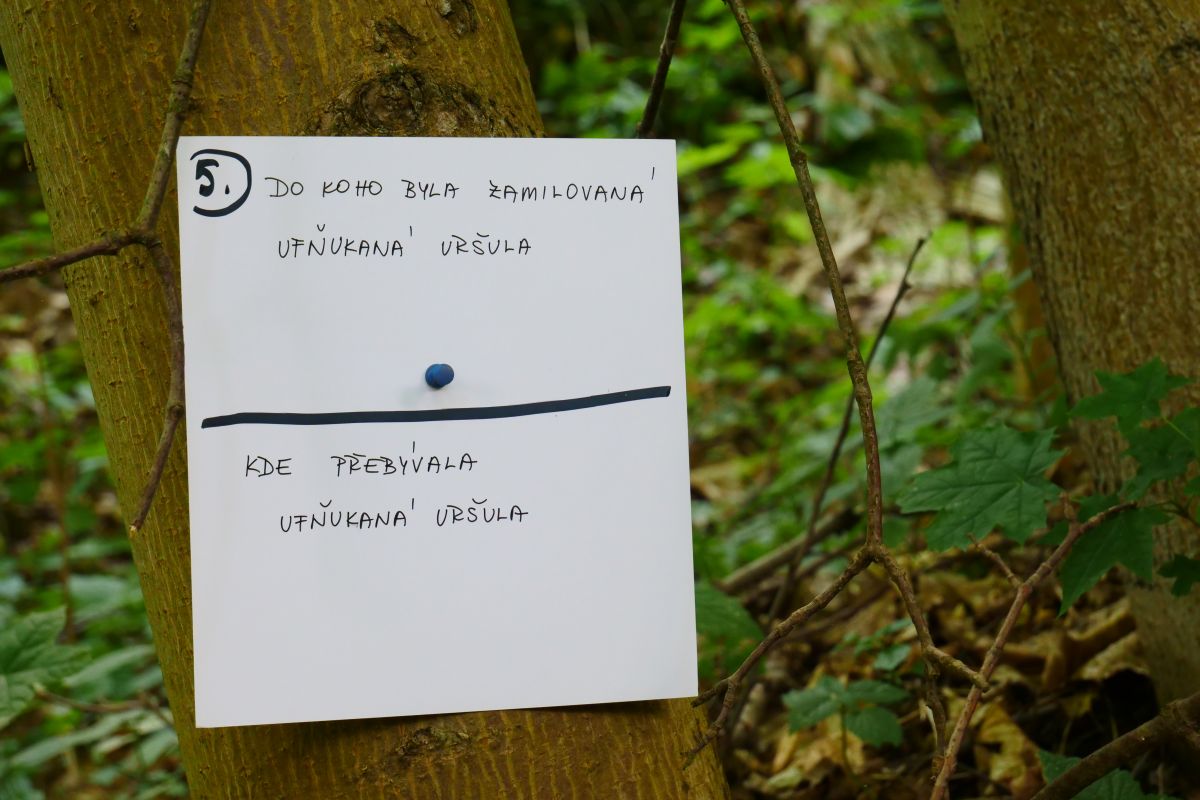 5. DO KOHO BYLA ZAMILOVANÁ
UFŇUKANÁ URŠULA
KDE PŘEBÝVALA
UFŇUKANÁ URŠULA